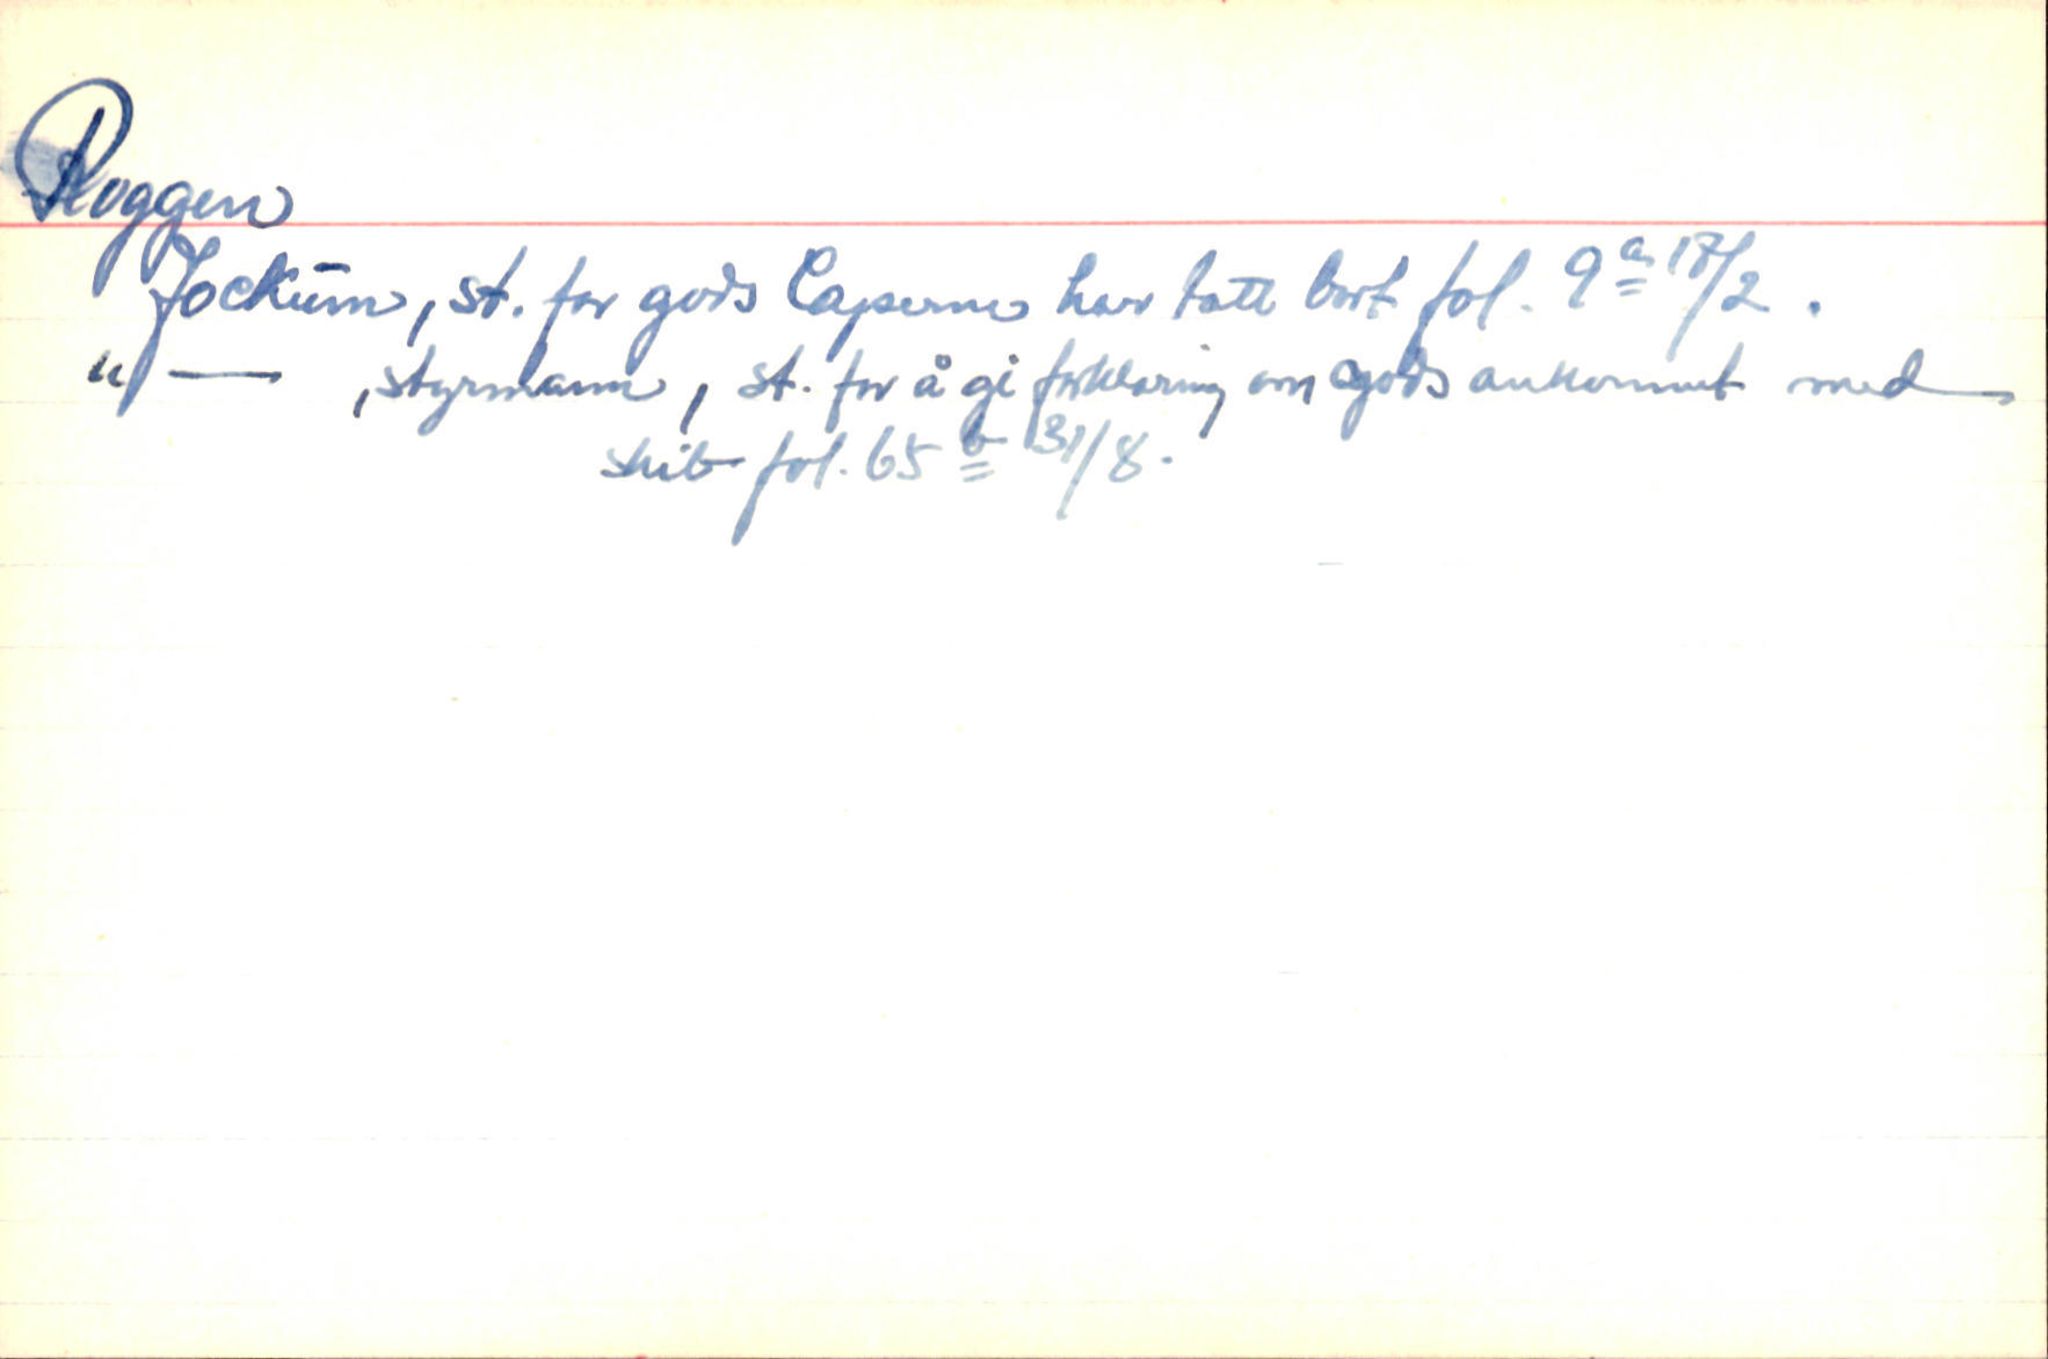 Roggen
Jockum, st. for gods Caperne har tatt bort fol. 9 a 18/2.
"— , styrmann, st. for å gi forklaring om gods ankommet med
skib fol. 65 b 31/8.